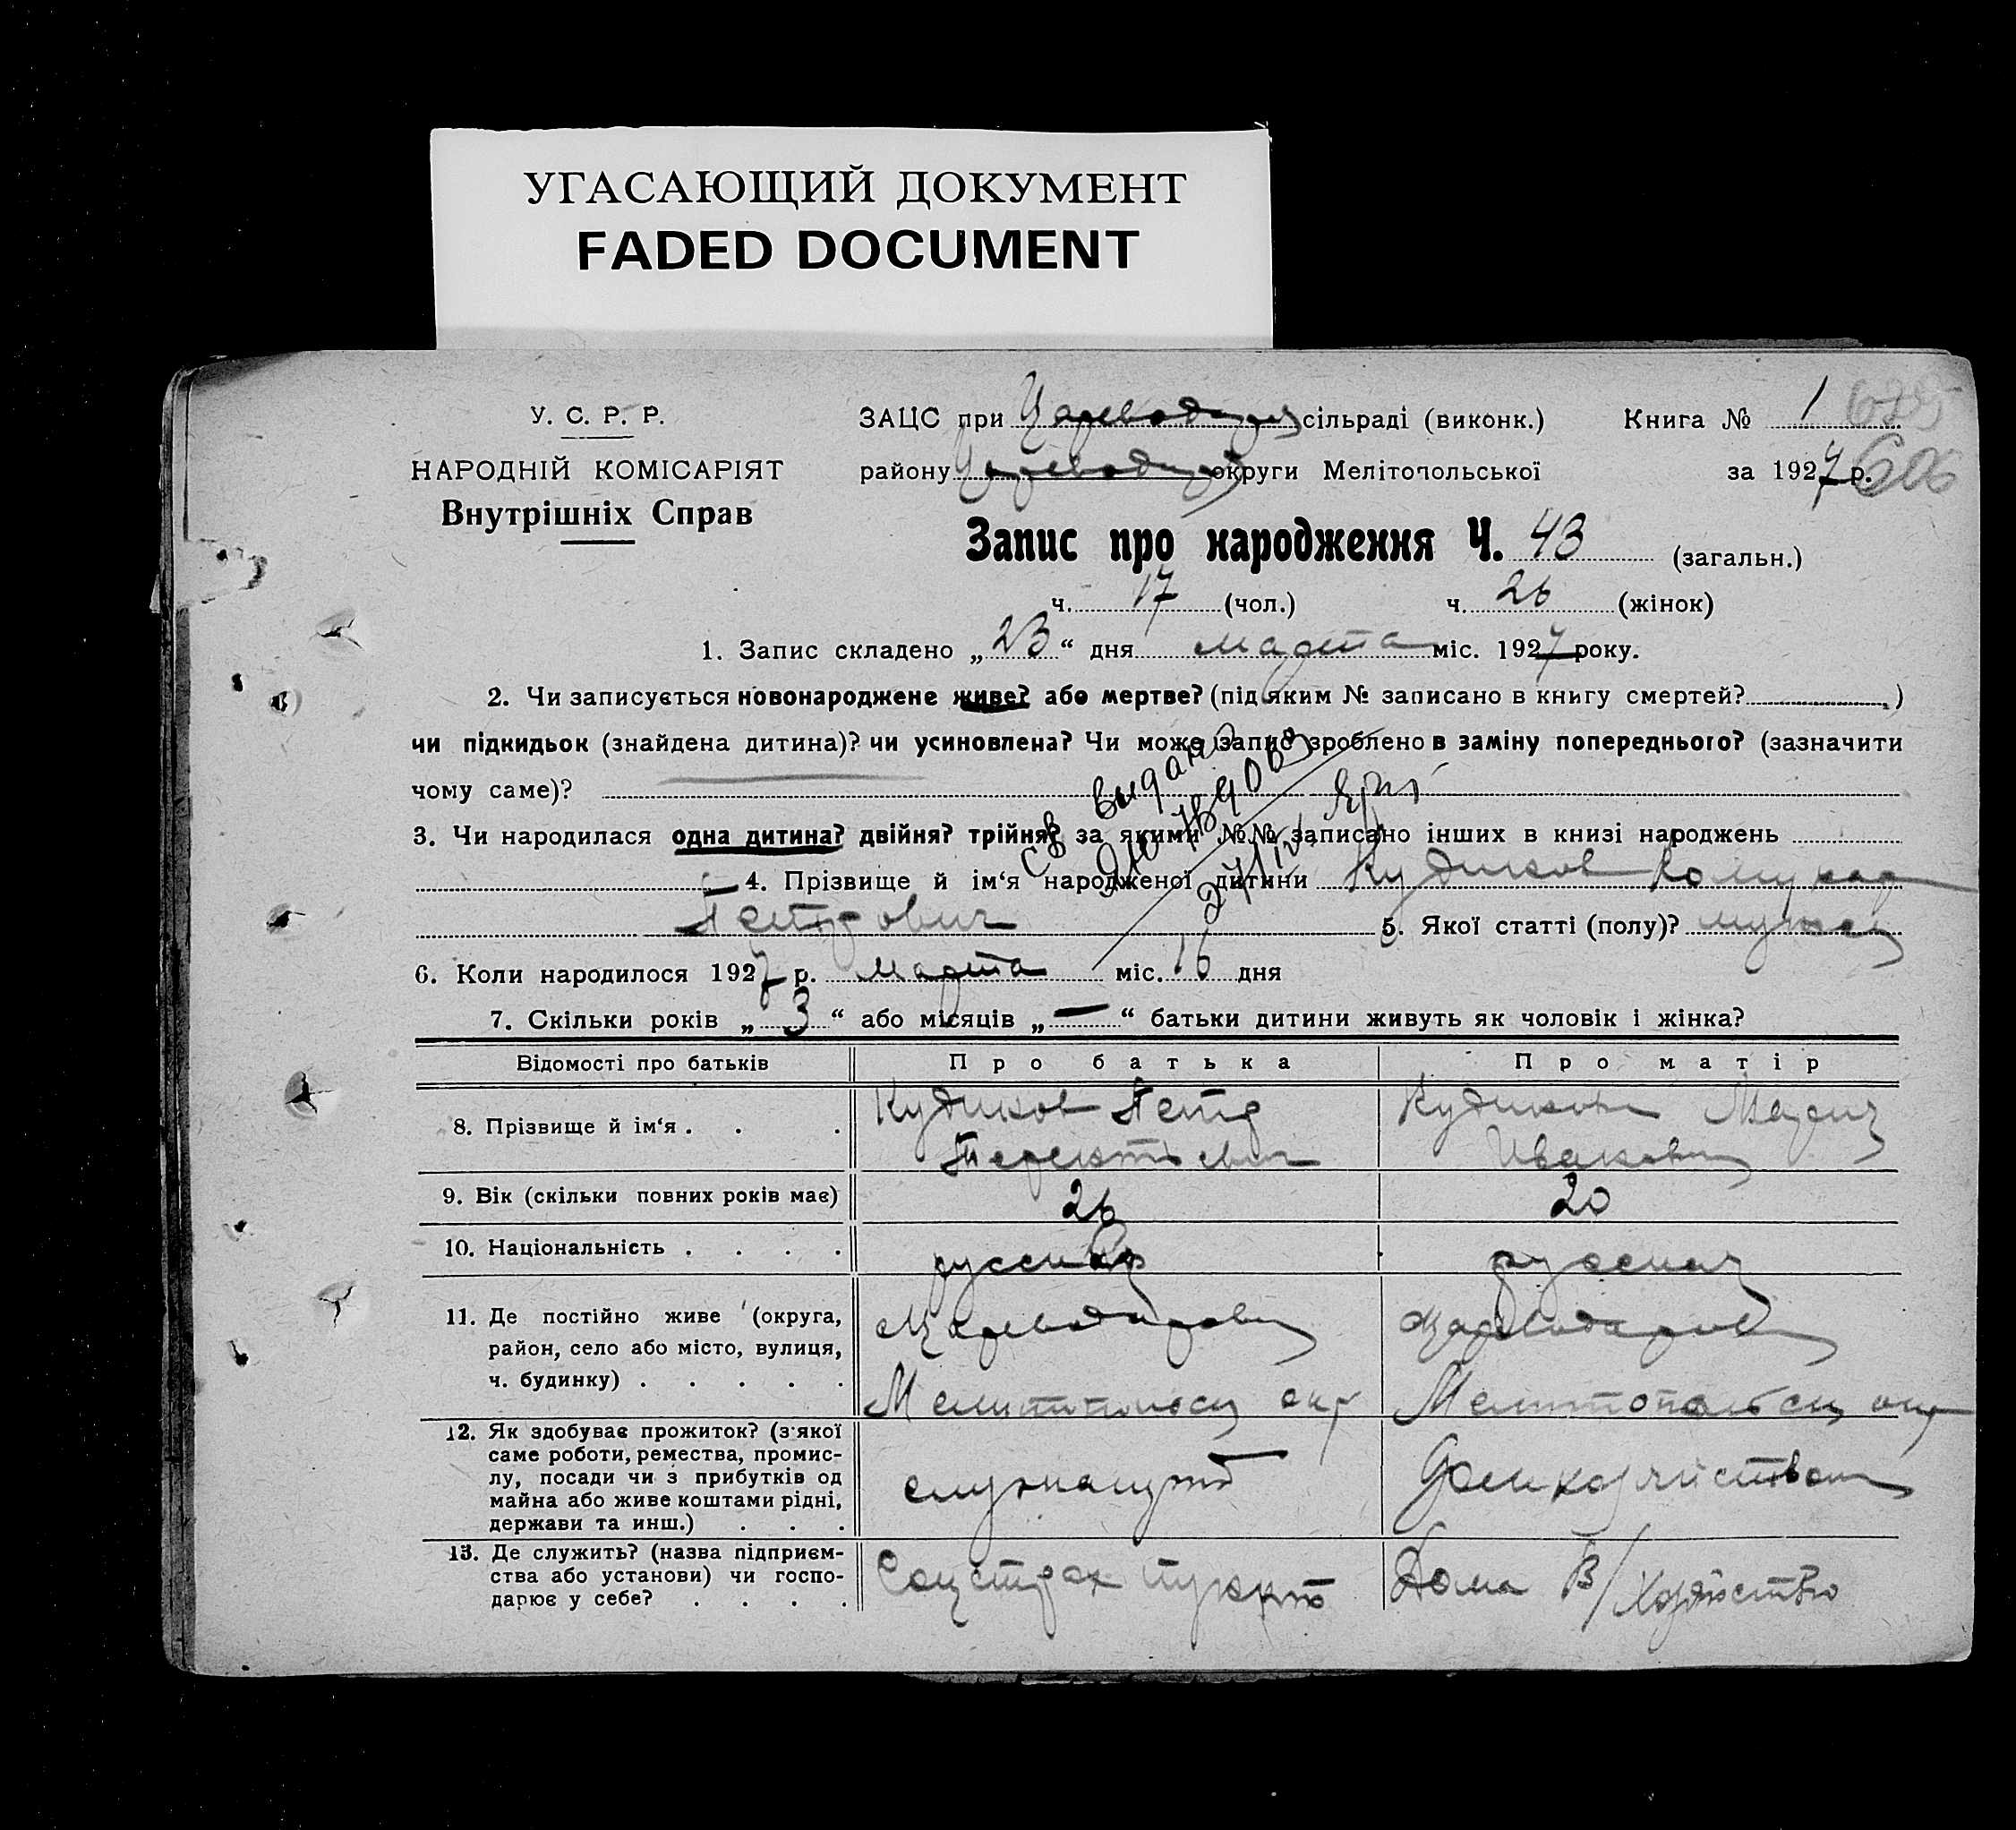 УГАСАЮЩИЙ ДОКУМЕНТ
FADED DOCUMENT
У. С. Р. Р.
НАРОДНІЙ КОМІСАРІЯТ
Внутрішніх Справ
ЗАЦС при сільраді (виконк.)
району округи Мелітопольської
Книга № 1
за 1927 р.
606
Запис про народження Ч. 43 (загальн.)
ч. 17 (чол.) ч. 26 (жінок)
1. Запис складено „23“ дня марта міс. 1927 року.
2. Чи записується новонароджене живе? або мертве? (під яким № записано в книгу смертей? )
чи підкидьок (знайдена дитина)? чи усиновлена? Чи може запис зроблено в заміну попереднього? (зазначити
чому саме)?
3. Чи народилася одна дитина? двійня? трійня? за якими №№ записано інших в книзі народжень
4. Прізвище й ім‘я народженої дитини Кудиков
Петрович 5. Якої статті (полу)?
6. Коли народилося 1927 р. марта міс. 16 дня
7. Скільки років „3“ або місяців „—“ батьки дитини живуть як чоловік і жінка?
Відомості про батьків
Про батька
Про матір
8. Прізвище й ім‘я . . .
Кудиков Петр
Терентьевич
Кудикова Мария
Ивановна
9. Вік (скільки повних років має)
26
20
10. Національність . . . .
русский
русская
11. Де постійно живе (округа,
район, село або місто, вулиця,
ч. будинку) . . . . .
Мелитопольск окр
Мелитопольск окр
12. Як здобуває прожиток? (з якої
саме роботи, ремества, промис-
лу, посади чи з прибутків од
майна або живе коштами рідні,
держави та инш.) . . .
13. Де служить? (назва підприєм-
ства або установи) чи госпо-
дарює у себе? . . . .
Соцстрах пункт
Дома В/Хозяйство
св выдано
27/IV